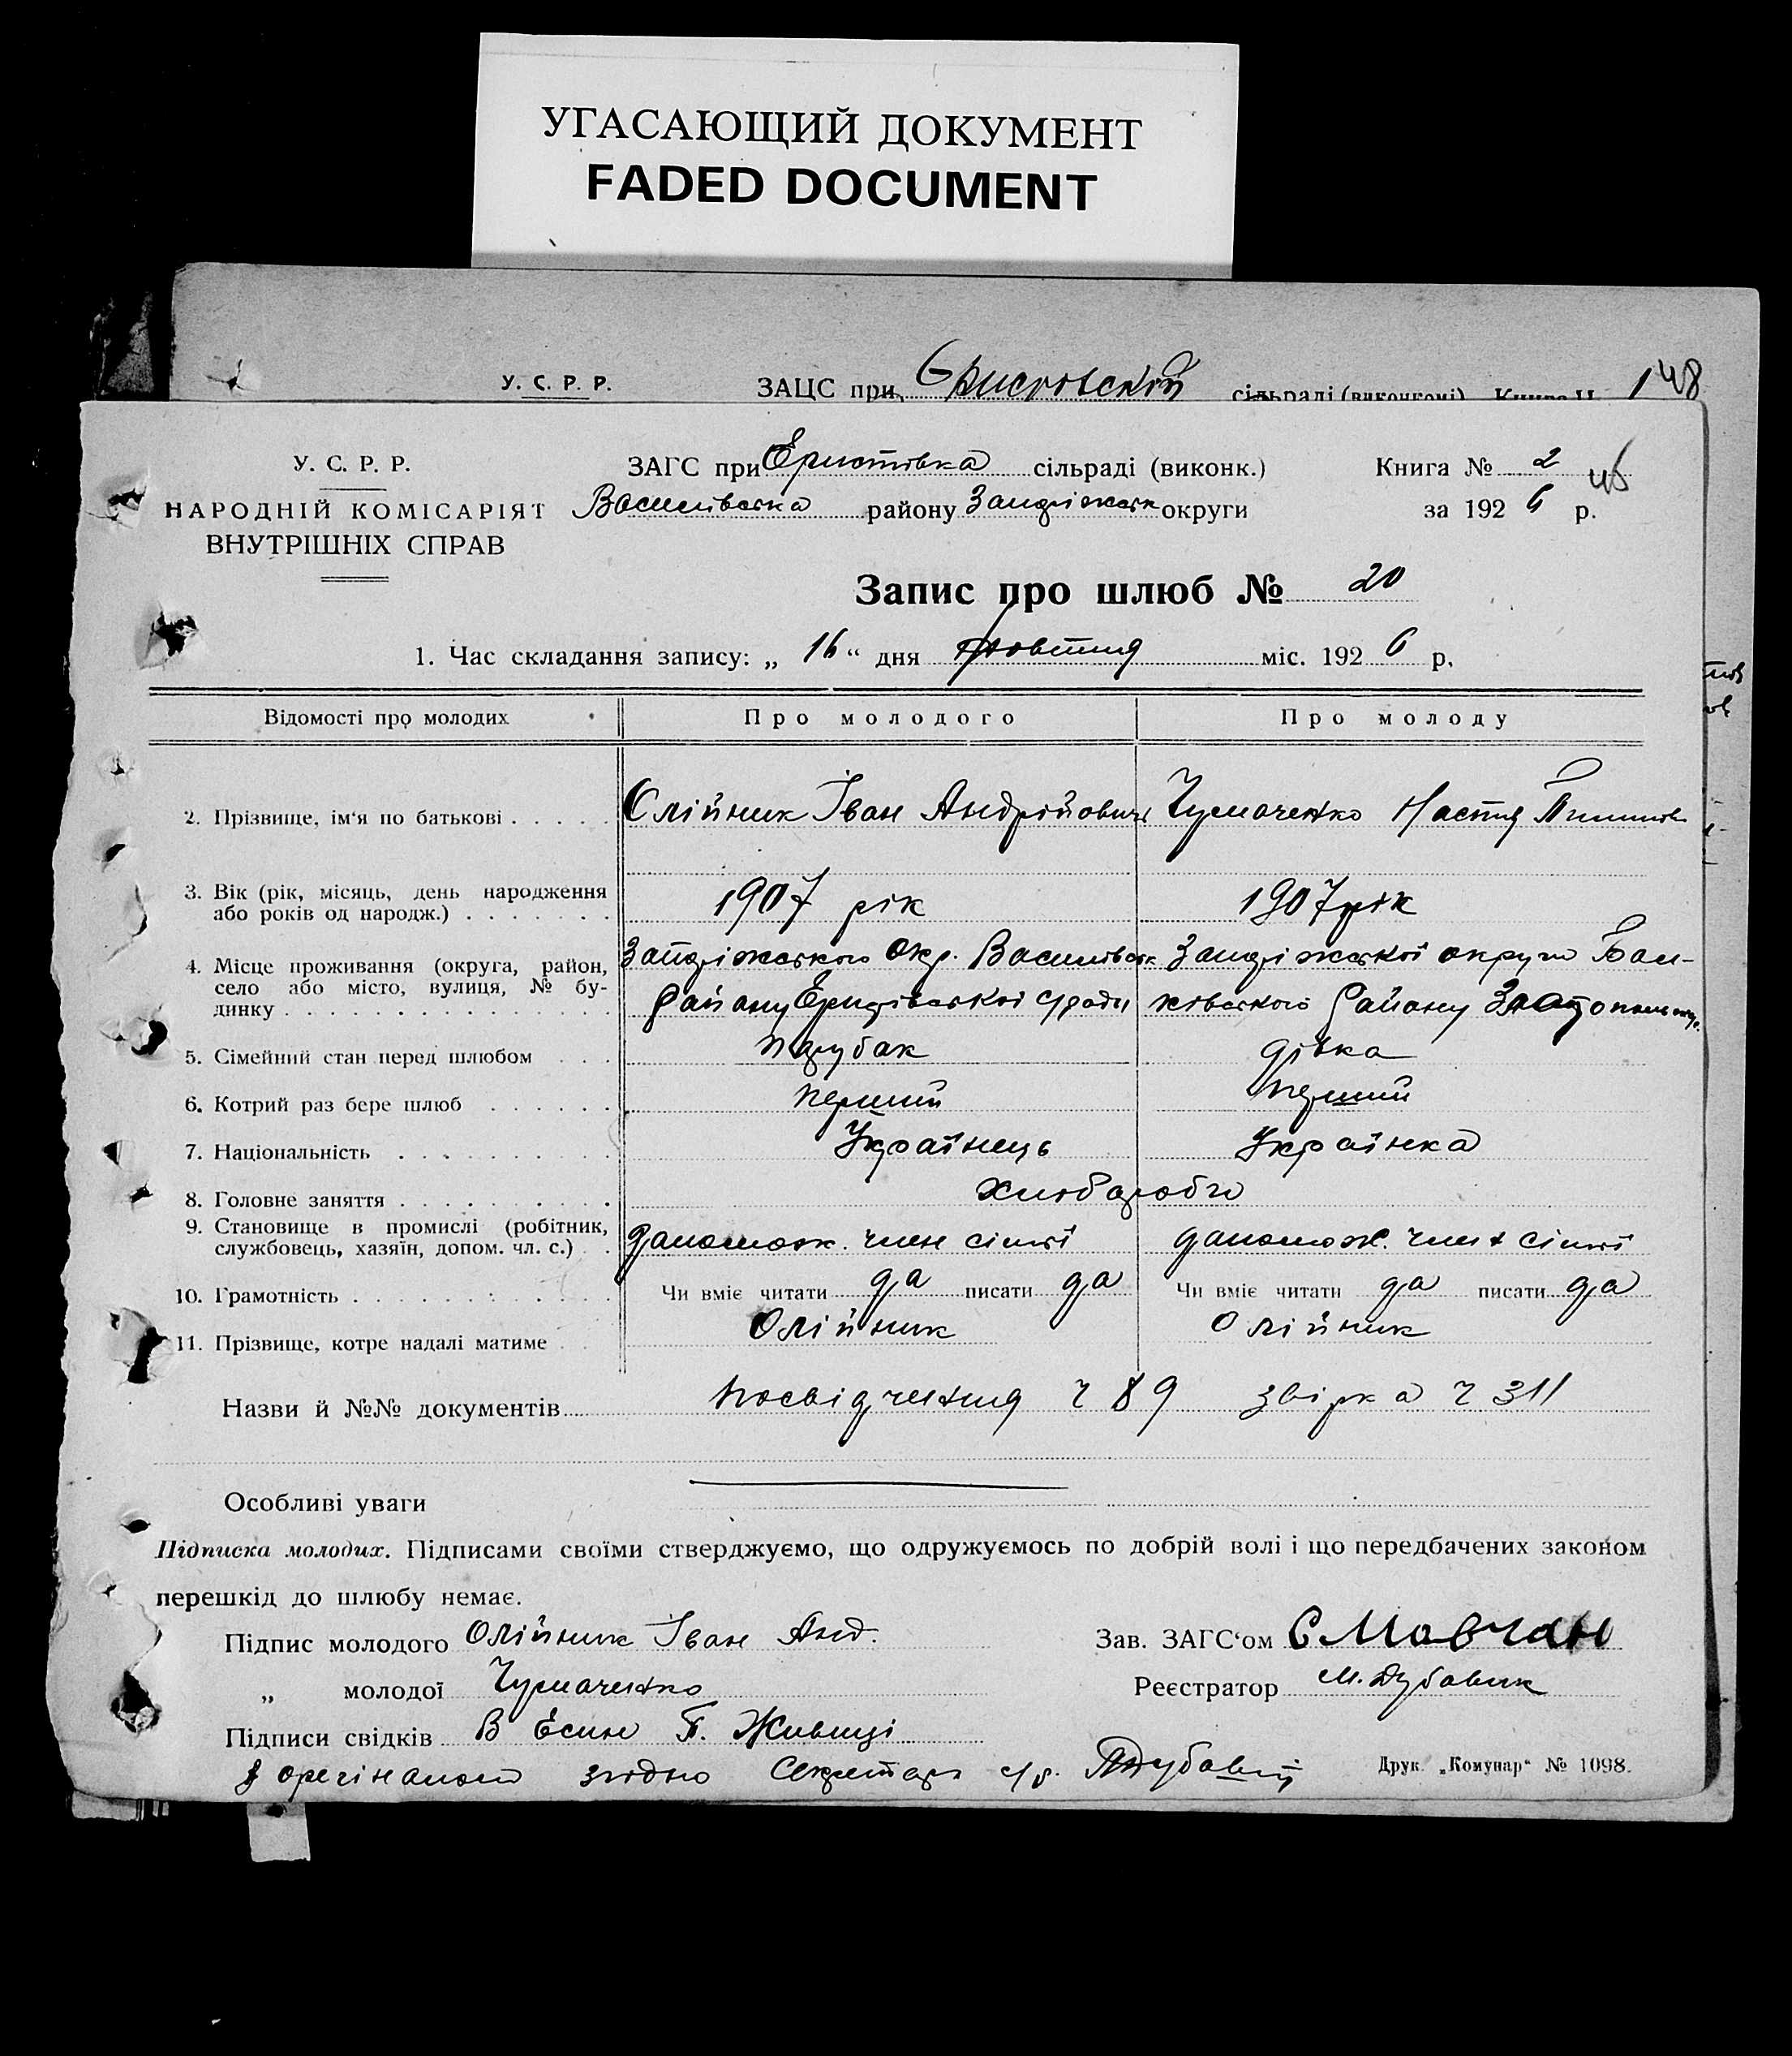 УГАСАЮЩИЙ ДОКУМЕНТ
FADED DOCUMENT
У. С. Р. Р. ЗАЦС при сільраді (виконкомі) Книга 148
У. С. Р. Р. ЗАГС при Еристівка сільраді (виконк.) Книга № 2
НАРОДНІЙ КОМІСАРІЯТ Василівська району округи за 1926 р.
ВНУТРІШНІХ СПРАВ
Запис про шлюб № 20
1. Час складання запису: „ 16 “ дня Жовтня міс. 1926 р.
Відомості про молодих Про молодого Про молоду
2. Прізвище, ім‘я по батькові Олійник Іван Андрійович Чумаченко Настя
3. Вік (рік, місяць, день народження
або років од народж.) 1907 рік 1907 рік
4. Місце проживання (округа, район,
село або місто, вулиця, № бу-
динку
5. Сімейний стан перед шлюбом парубак дівка
6. Котрий раз бере шлюб перший перший
7. Національність Українець Українка
8. Головне заняття
9. Становище в промислі (робітник,
службовець, хазяїн, допом. чл. с.) член сімї член сімї
10. Грамотність Чи вміє читати да писати да Чи вміє читати да писати да
11. Прізвище, котре надалі матиме Олійник Олійник
Назви й №№ документів посвідчення ч 89 звірка ч 311
Особливі уваги
Підписка молодих. Підписами своїми стверджуємо, що одружуємось по добрій волі і що передбачених законом
перешкід до шлюбу немає.
Підпис молодого Олійник Іван Анд. Зав. ЗАГС‘ом С Мовчан
„ молодої Чумаченко Реєстратор М. Дубовик
Підписи свідків В
згодно Секретарь Друк. „Комунар“ № 1098.